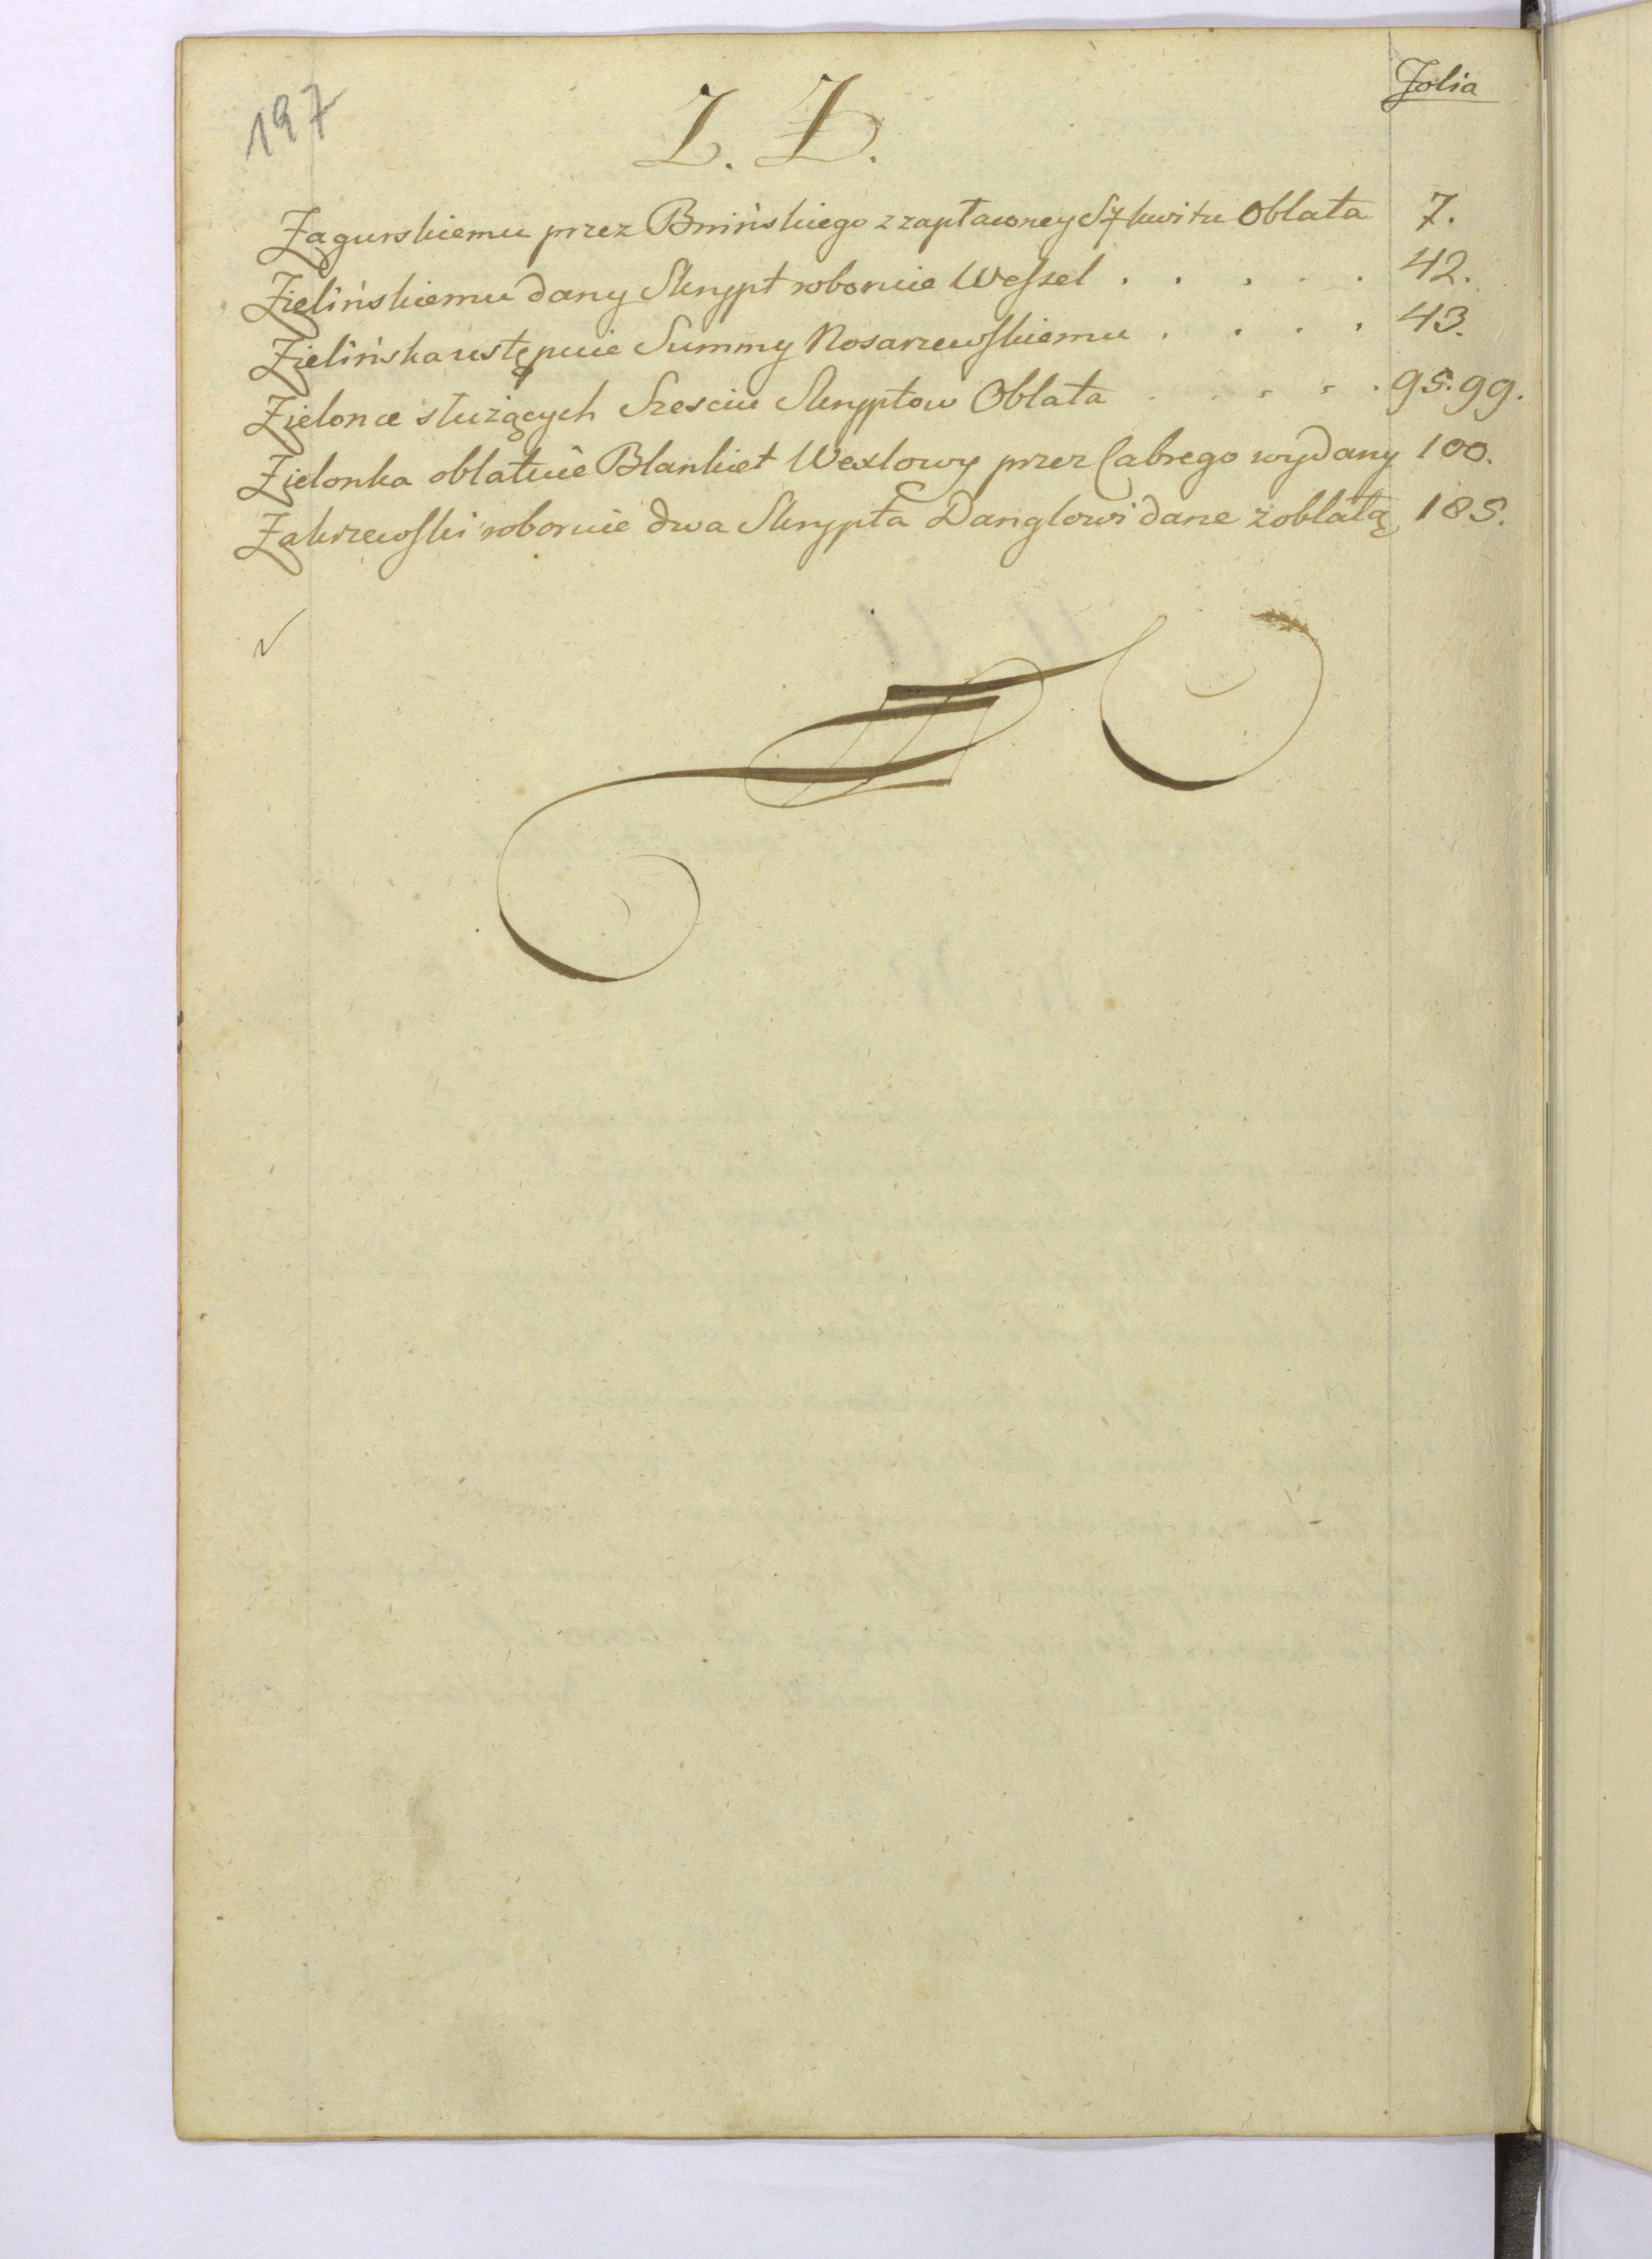 197
Folia
Z. Ż.
Zagurskiemu przez Bnińskiego z zapłaconey S̃ kwitu Oblata 7.
Zielińskiemu dany Skrypt roboruie Wessel . . . . . 42.
Zielińska ustępuie Summy Rosarzewskiemu . . . . 43.
Zielonce służących Szesciu Skryptow Oblata . . . . . 95. 99.
Zielonka oblatuie Blankiet Wexlowy przez Cabrego wydany 100.
Zakrzewski roboruie dwa Skrypta Danglowi dane z oblatą 185.